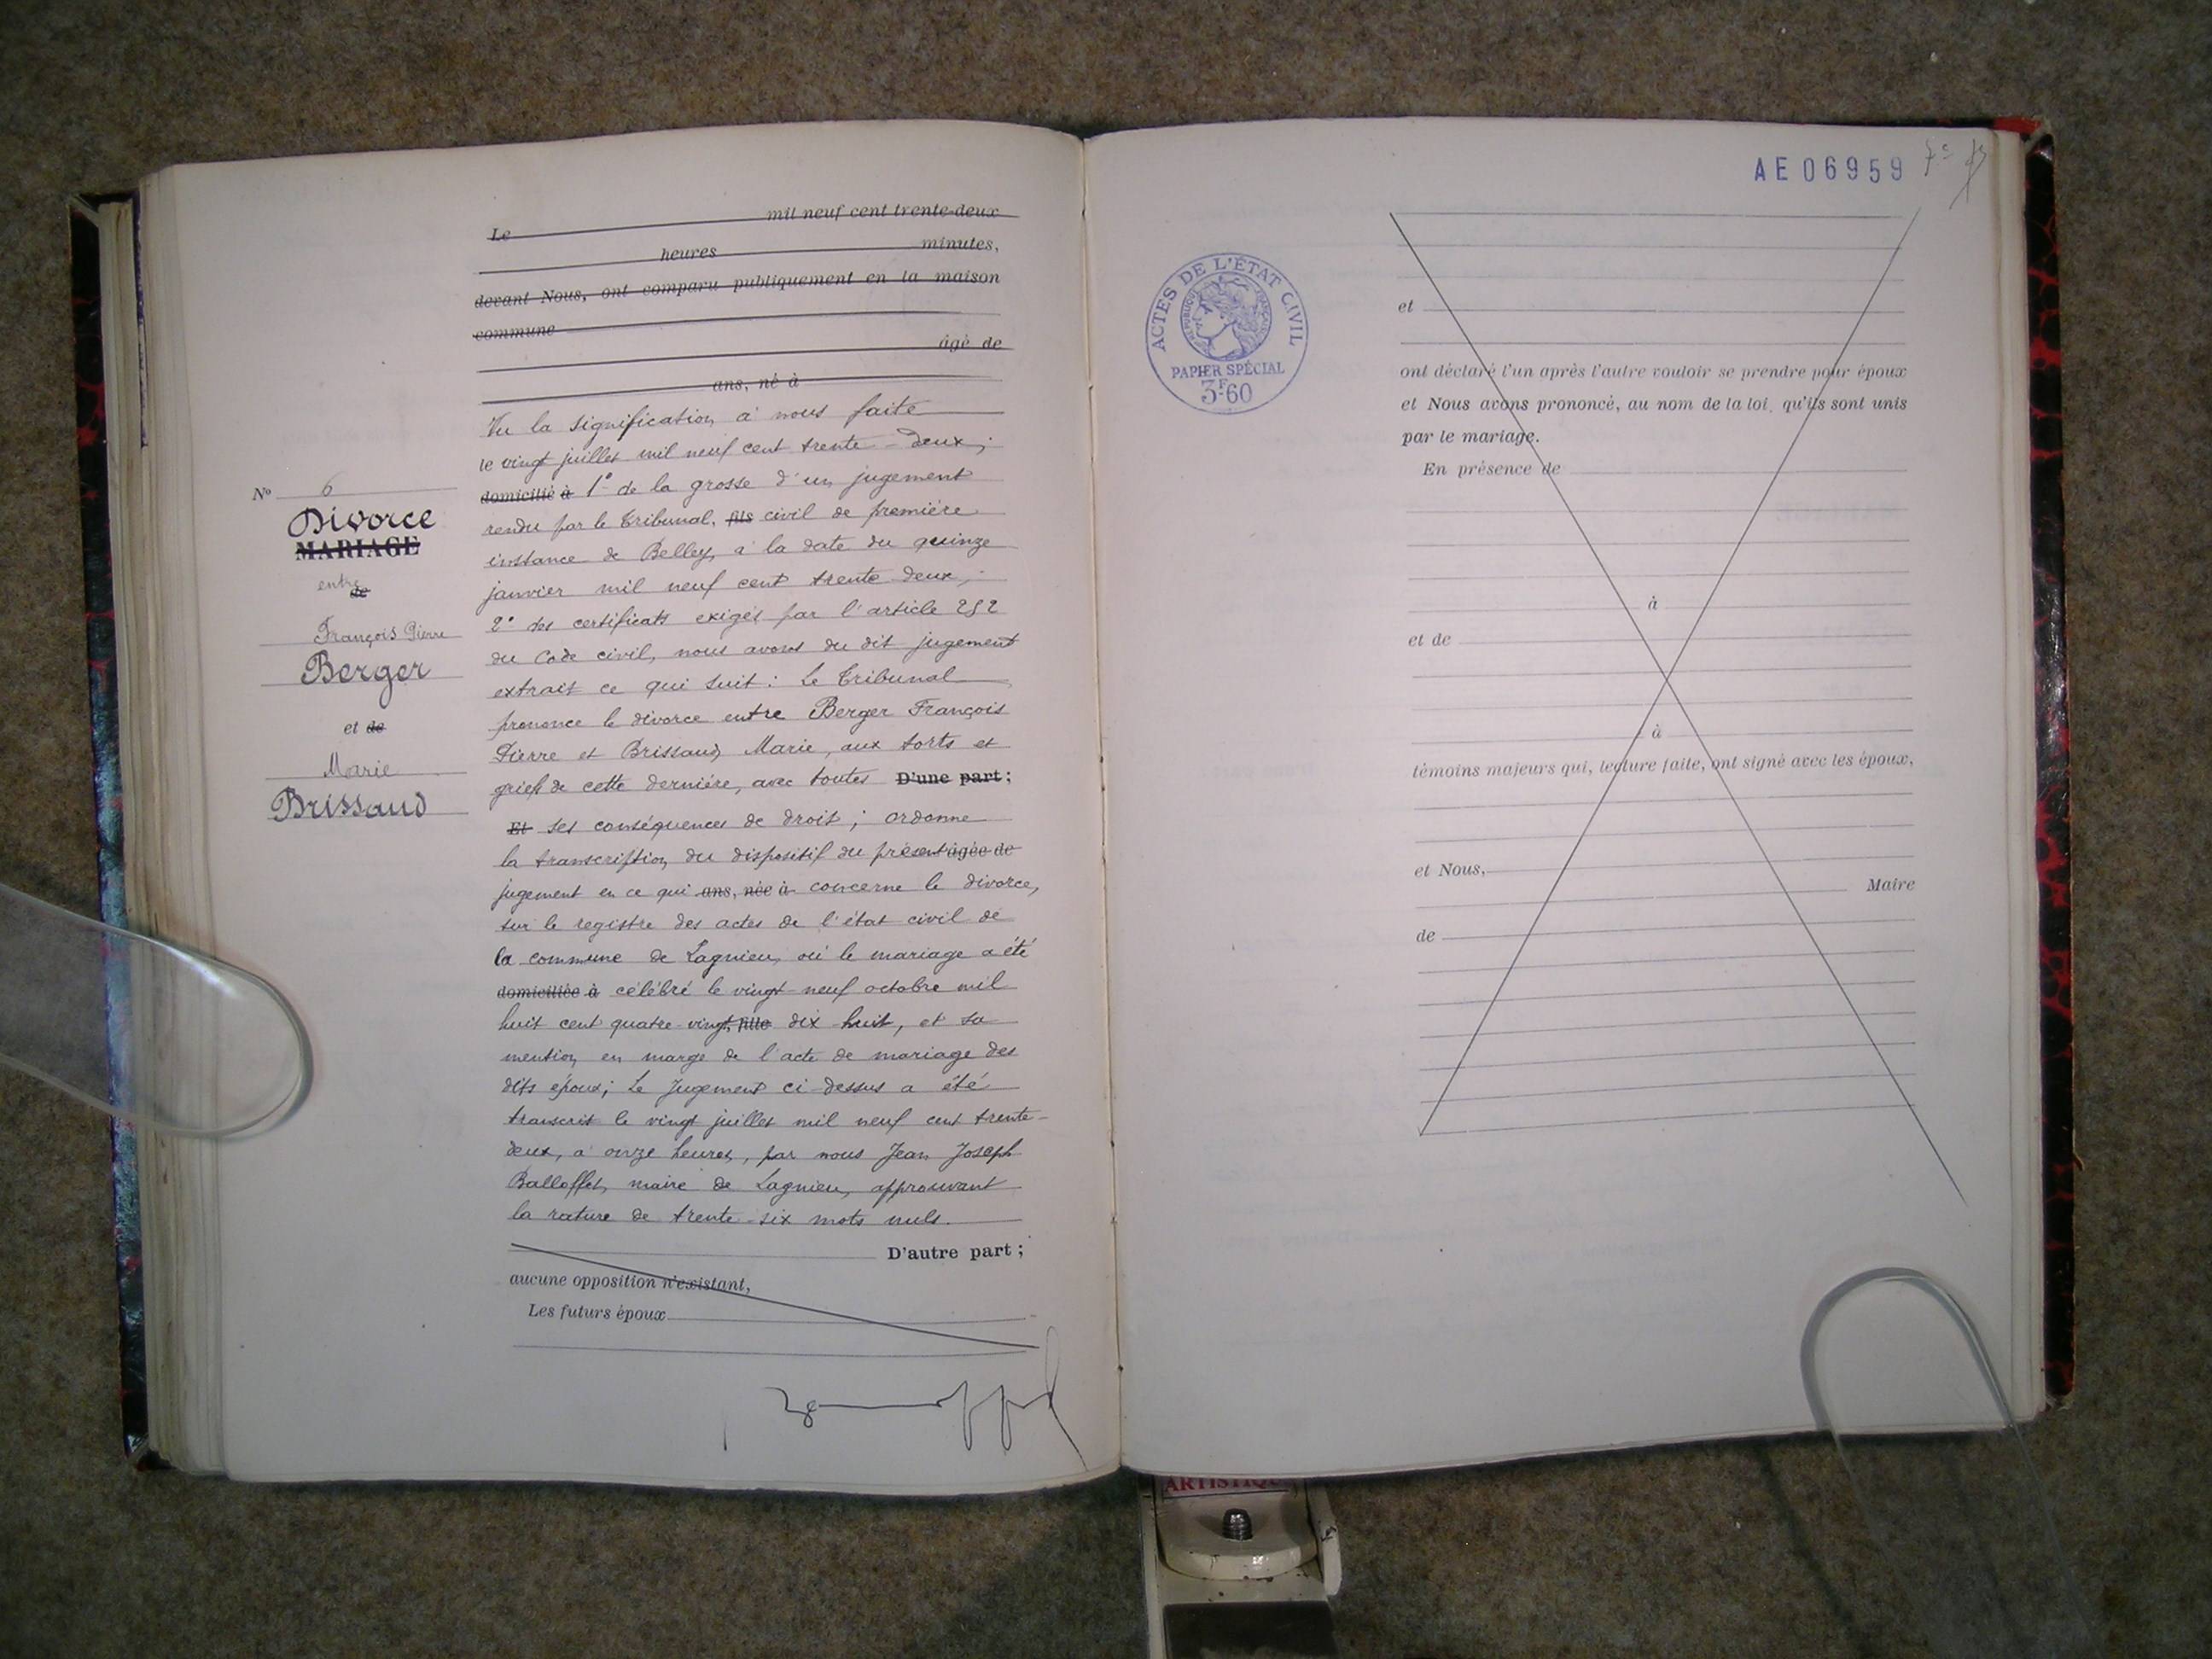 Le mil neuf cent trente-deux
heures minutes,
devant Nous, ont comparu publiquement en la maison
commune
âgé de
ans, né à
Vu la signification à nous faite
le vingt juillet mil neuf cent trente-deux ;
domicilié à 1° de la grosse d'un jugement
rendu par le Tribunal, fils civil de première
instance de Belley, à la date du quinze
janvier mil neuf cent trente deux,
2° des certificats exigés par l'article 252
du Code civil, nous avons du dit jugement
extrait ce qui suit : Le Tribunal
prononce le divorce entre Berger François
Pierre et Brissaud Marie, aux torts et
griefs de cette dernière, avec toutes D'une part ;
Et ses conséquences de droit ; ordonne
la transcription du dispositif du présent âgée de
jugement en ce qui ans, née à concerne le divorce,
sur le registre des actes de l'état civil de
la commune de Lagnieu, où le mariage a été
domiciliée à célébré le vingt-neuf octobre mil
huit cent quatre-vingt, fille dix-huit, et sa
mention en marge de l'acte de mariage des
dits époux ; Le Jugement ci-dessus a été
transcrit le vingt juillet mil neuf cent trente-
deux, à onze heures, par nous Jean Joseph
Balloffet, maire de Lagnieu, approuvant
la rature de trente-six mots nuls.
D'autre part ;
aucune opposition n'existant,
Les futurs époux
N° 6
Divorce
MARIAGE
entre
de
François Pierre
Berger
et de
Marie
Brissaud
AE 06959
ACTES DE L'ÉTAT CIVIL
RÉPUBLIQUE FRANÇAISE
PAPIER SPÉCIAL
3F.60
et
ont déclaré l'un après l'autre vouloir se prendre pour époux
et Nous avons prononcé, au nom de la loi, qu'ils sont unis
par le mariage.
En présence de
à
et de
à
témoins majeurs qui, lecture faite, ont signé avec les époux,
et Nous,
Maire
de
ARTISTIQUE